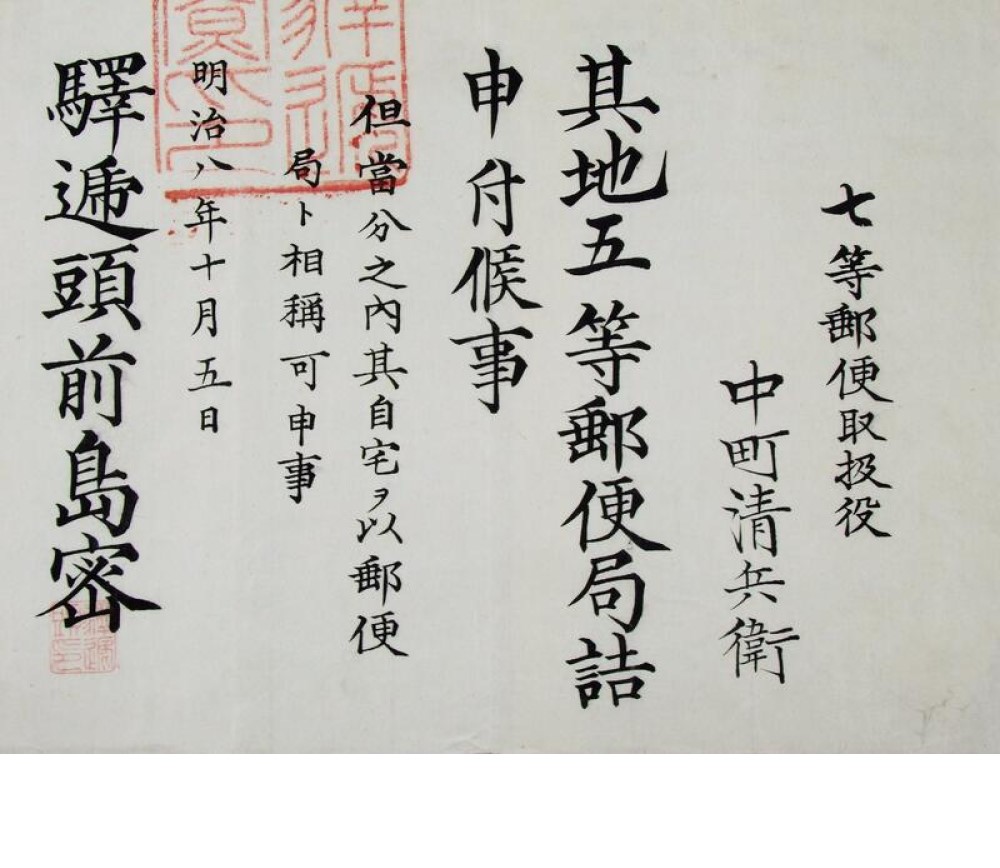 七等郵便取扱役
中町清兵衛
其地五等郵便局詰
申付候事
但當分之內其自宅ヲ以郵便
局ト相稱可申事
明治八年十月五日
驛遞頭前島密